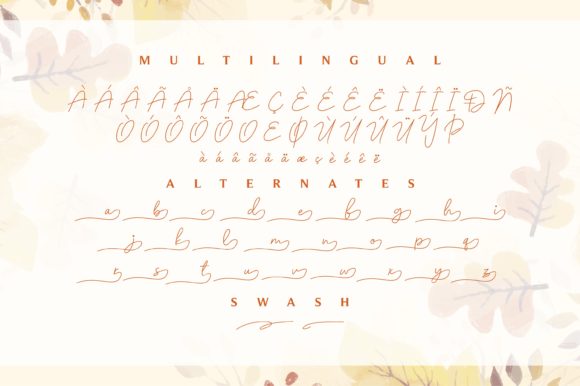 MULTILINGUAL
À Á Â Ã Å Ä Æ Ç È É Ê Ë Ì Í Î Ï Ð Ñ
Ò Ó Ô Õ Ö Œ Ø Ù Ú Û Ü Ý Þ
à á â ã å ä æ ç è é ê ë
ALTERNATES
a b c d e f g h i
j k l m n o p q
r s t u v w x y z
SWASH